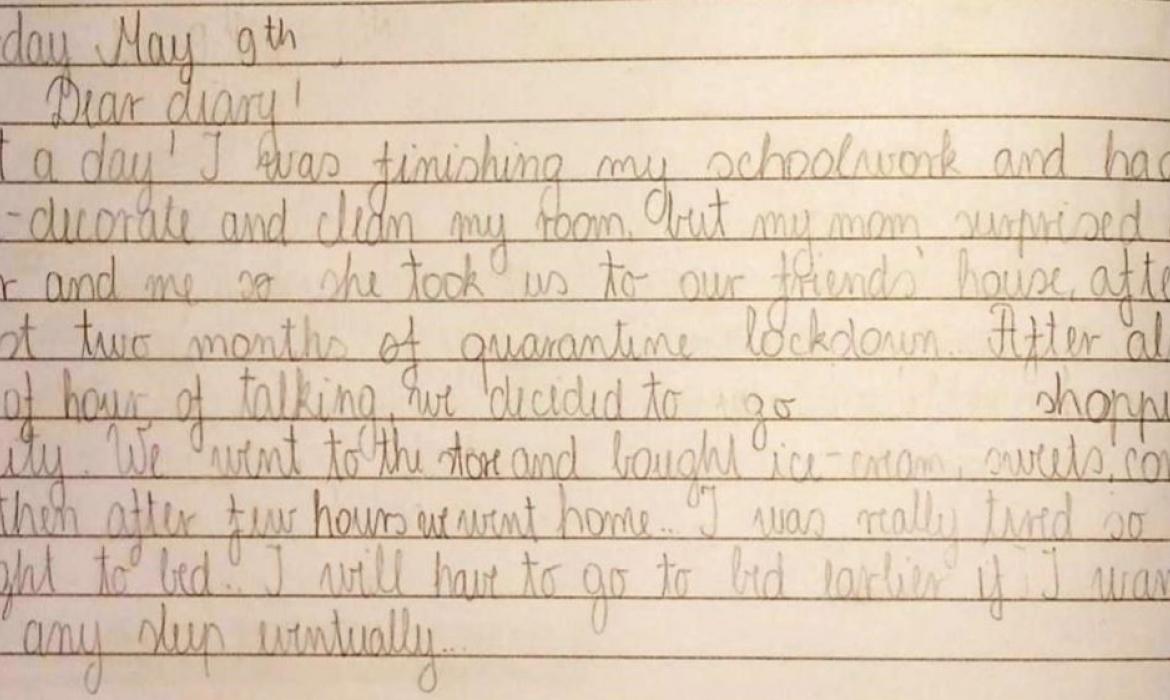 day May 9th
Dear diary!
t a day! I was finishing my schoolwork and had
-decorate and clean my room, but my mom surprised
r and me so she took us to our friends' house, afte
ot two months of quarantine lockdown. After al
of hour of talking, we decided to go shoppi
ity. We went to the store and bought ice-cream, sweets, co
then after few hours we went home... I was really tired so
ght to bed. I will have to go to bed earlier if I wan
any sleep eventually...